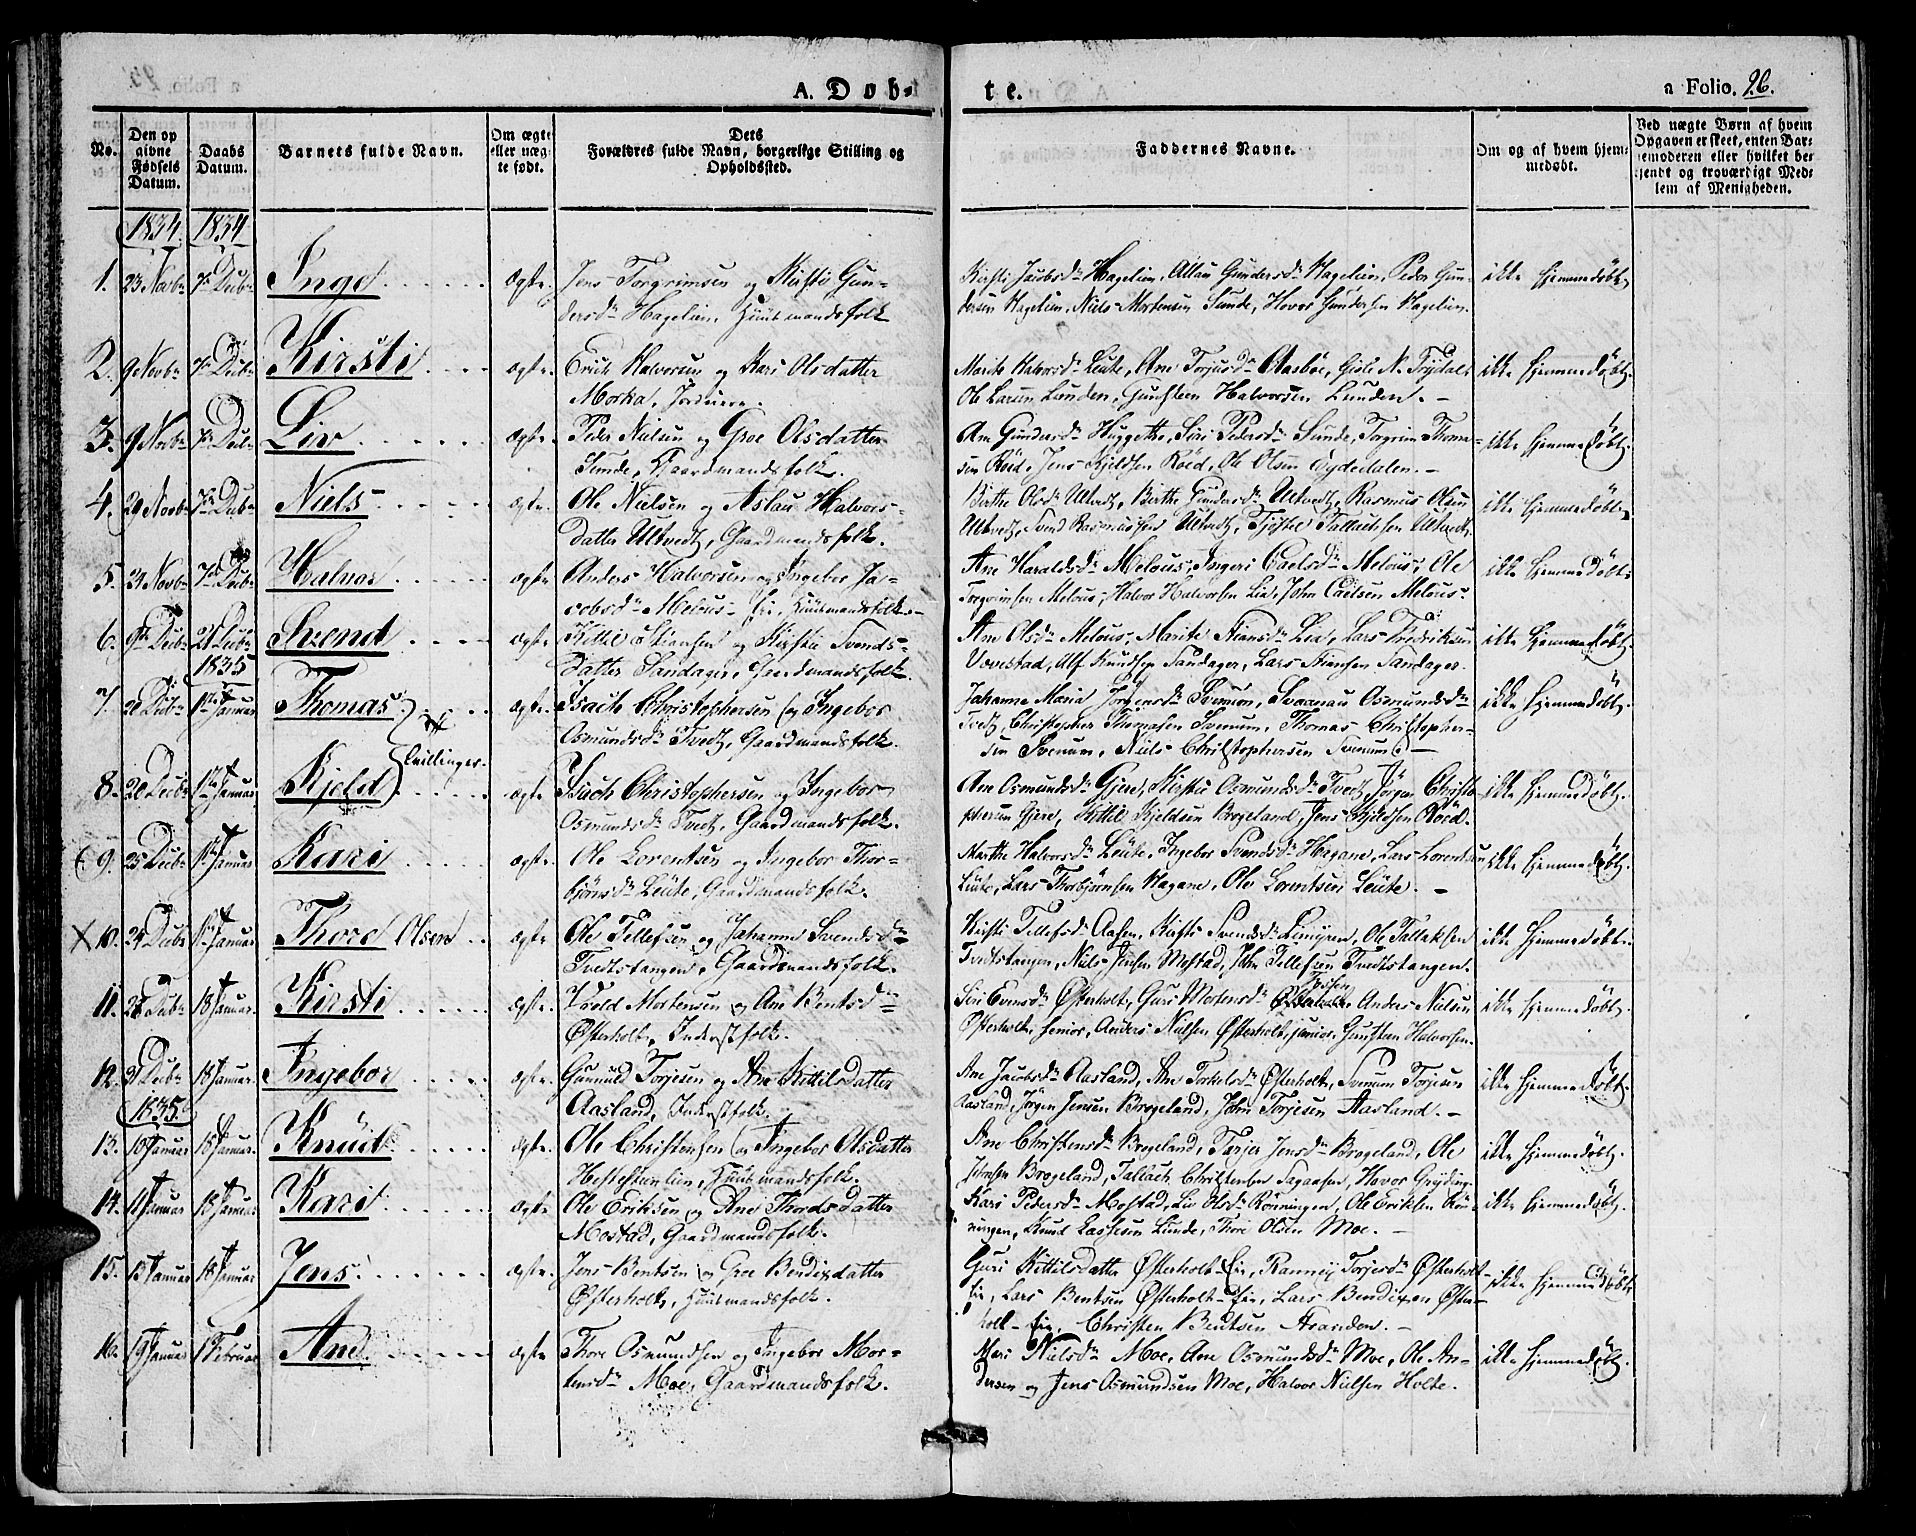 A. Døb-
te.
a Folio. 26.
No.
Den op
givne
Fødsels
Datum.
Daabs
Datum.
Barnets fulde Navn.
Om ægte
eller uæg
te født.
Dets
Forældres fulde Navn, borgerlige Stilling og
Opholdssted.
Faddernes Navne.
Om og af hvem hjem-
medøbt.
Ved uægte Børn af hvem
Opgaven er skeet, enten Bar-
nemoderen eller hvilket be-
kjendt og troværdigt Med-
lem af Menigheden.
1834. 1834
1. 23 Novbr 7de Decbr Inge ægte. Jens Torgrimsen og Kirsti Gun-
dersdr Hagelien, Huusmandsfolk
Kirsti Jacobsdr Hagelien, Aslau Gundersdr Hagelien, Peder Gun-
dersen Hagelien, Niels Mortensen Sunde, Hovor Gundersen Hagelien.
ikke hjemmedøbt.
2. 9 Novbr 7de Decbr Kirsti ægte. Erich Halvorsen og Kari Olsdatter
Morka,
Marite Halvorsdr Leüte, Ane Torjusdr Aasböe, Gisle N. Trydal
Ole Larsen Lunden, Gunsteen Halvorsen Lunden. -
ikke hjemmedøbt.
3. 9 Novbr 7de Decbr Liv ægte. Peder Nielsen og Groe Olsdatter
Sunde, Gaardmandsfolk.
Ane Gundersdr Huggethe, Siri Pedersdr Sunde, Torgrim Thom-
sen Röed, Jens Kjeldsen Röed, Ole Olsen Eydedalen. -
ikke hjemmedøbt.
4. 20 Novbr 7de Decbr Niels ægte. Ole Nielsen og Aslau Halvors-
datter Ultvedt, Gaardmandsfolk.
Birthe Olsdr Ultvedt, Birthe Gundersdr Ultvedt, Rasmus Olsen
Ultvedt, Svend Rasmussen Ultvedt, Tallachsen Ultvedt.
ikke hjemmedøbt.
5. 23 Novbr 7de Decbr Halvor ægte. Anders Halvorsen og Ingebor Ja-
cobsdr Melous- Eie, Huusmandsfolk.
Ane Haraldsdr Melous, Ingeri Caelsdr Melöus, Ole
Torgrimsen Melous, Halvor Halvorsen Lia, John Caelsen Melous.
ikke hjemmedøbt.
6. 9de Decbr 21 Decbr Svend ægte. Kittil Stiansen og Kirstie Svends-
datter Sandager, Gaardmandsfolk.
Ane Olsdr Melous, Marite Stiansdr Lia, Lars Fredriksen
Vovestad, Alf Knudsen Sandager, Lars Stiansen Sandager.
ikke hjemmedøbt.
1835
7. 20 Decbr 1te Januar Thomas ægte. Isach Christophersen og Ingebor
Osmundsdr Tvedt, Gaardmandsfolk.
Johanne Maria Jörgensdr Svenum, Svaanau Osmundsdr
Tvedt, Christopher Thomasen Svenum, Thomas Christopher-
sen Svenum, Niels Christophersen Svenum. -
ikke hjemmedøbt.
Tvillinger.
8. 20 Decbr 1te Januar Kjeld ægte Isach Christophersen og Ingebor
Osmundsdr Tvedt, Gaardmandsfolk.
Ane Osmundsdr Gjere, Kirstie Osmundsdr Tvedt, Jörgen Christo-
phersen Gjere, Kittil Kjeldsen Brogeland, Jens Kjeldsen Röed.
ikke hjemmedøbt.
9. 25 Decbr 1te Januar Kari ægte. Ole Lorentsen og Ingebor Thor-
björnsdr Leüte, Gaardmandsfolk.
Marthe Halvorsdr Leüte, Ingebor Svendsdr Hagane, Lars Lorentsen
Leüte, Lars Thorbjörnsen Hagane, Ole Lorentsen Leüte. -
ikke hjemmedøbt.
X 10. 24 Decbr 1te Januar Thore Olsen ægte Ole Tellefsen og Johanne Svendsdr
Tvedtstangen, Gaardmandsfolk.
Kirsti Tellefsdr Aasen, Kirsti Svendsdr Limyren, Ole Tallaksen
Tvedtstangen, Niels Jensen Mostad, John Tellefsen Tvedtstangen.
ikke hjemmedøbt.
11. 28 Decbr 18 Januar. Kirsti ægte. Mortensen og Ane Bentsdr
Østerholt, Inderstfolk.
Siri Evensdr Østerholt, Guri Mortensdr Anders Nielsen
Østerholt, senior, Anders Nielsen Østerholt, junior, Gunsteen Halvorsen.
ikke hjemmedøbt.
12. 31 Decbr 18 Januar. Ingebor ægte. Gunnuld Torjesen og Ane Kittilsdatter
Aasland, Inderstfolk.
Ane Jacobsdr Aasland, Ane Torkelsdr Østerholt, Svenum Torjesen
Aasland, Jörgen Jensen Brogeland, John Torjesen Aasland. -
ikke hjemmedøbt.
1835
13. 10 Januar 18 Januar. Knüd ægte. Ole Christensen og Ingebor Olsdatter
Hestesteenlien, Huusmandsfolk.
Ane Christensdr Brogeland, Tarjer Jensdr Brogeland, Ole
Johnsen Brogeland, Tallach Christensen Sagaasen, Hovor Gryding.
ikke hjemmedøbt.
14. 11 Januar 18 Januar Kari ægte Ole Eriksen og Ane Thordsdatter
Mostad, Gaardmandsfolk.
Kari Pedersdr Mostad, Liv Olsdr Rönningen, Ole Eriksen Rön-
ningen, Knud Lassesen Lunde, Thore Olsen Moe. -
ikke hjemmedøbt.
15. 13 Januar 18 Januar Jens ægte. Jens Bentsen og Groe Bendixdatter
Østerholt, Huusmandsfolk.
Guri Kittilsdatter Østerholt-Eie, Rannei Torjesdr Østerholt-
Eie, Lars Bentsen Østerholt-Eie, Lars Bendixen Øster-
holt-Eie, Christen Bentsen Stranden. -
ikke hjemmedøbt
16. 19 Januar 1 Februar Ane ægte Thore Osmundsen og Ingebor Mor-
tensdr Moe, Gaardmandsfolk.
Mari Nielsdr Moe, Ane Osmundsdr Moe, Ole An-
dersen og Jens Osmundsen Moe, Halvor Nielsen Holte.
ikke hjemmedøbt.